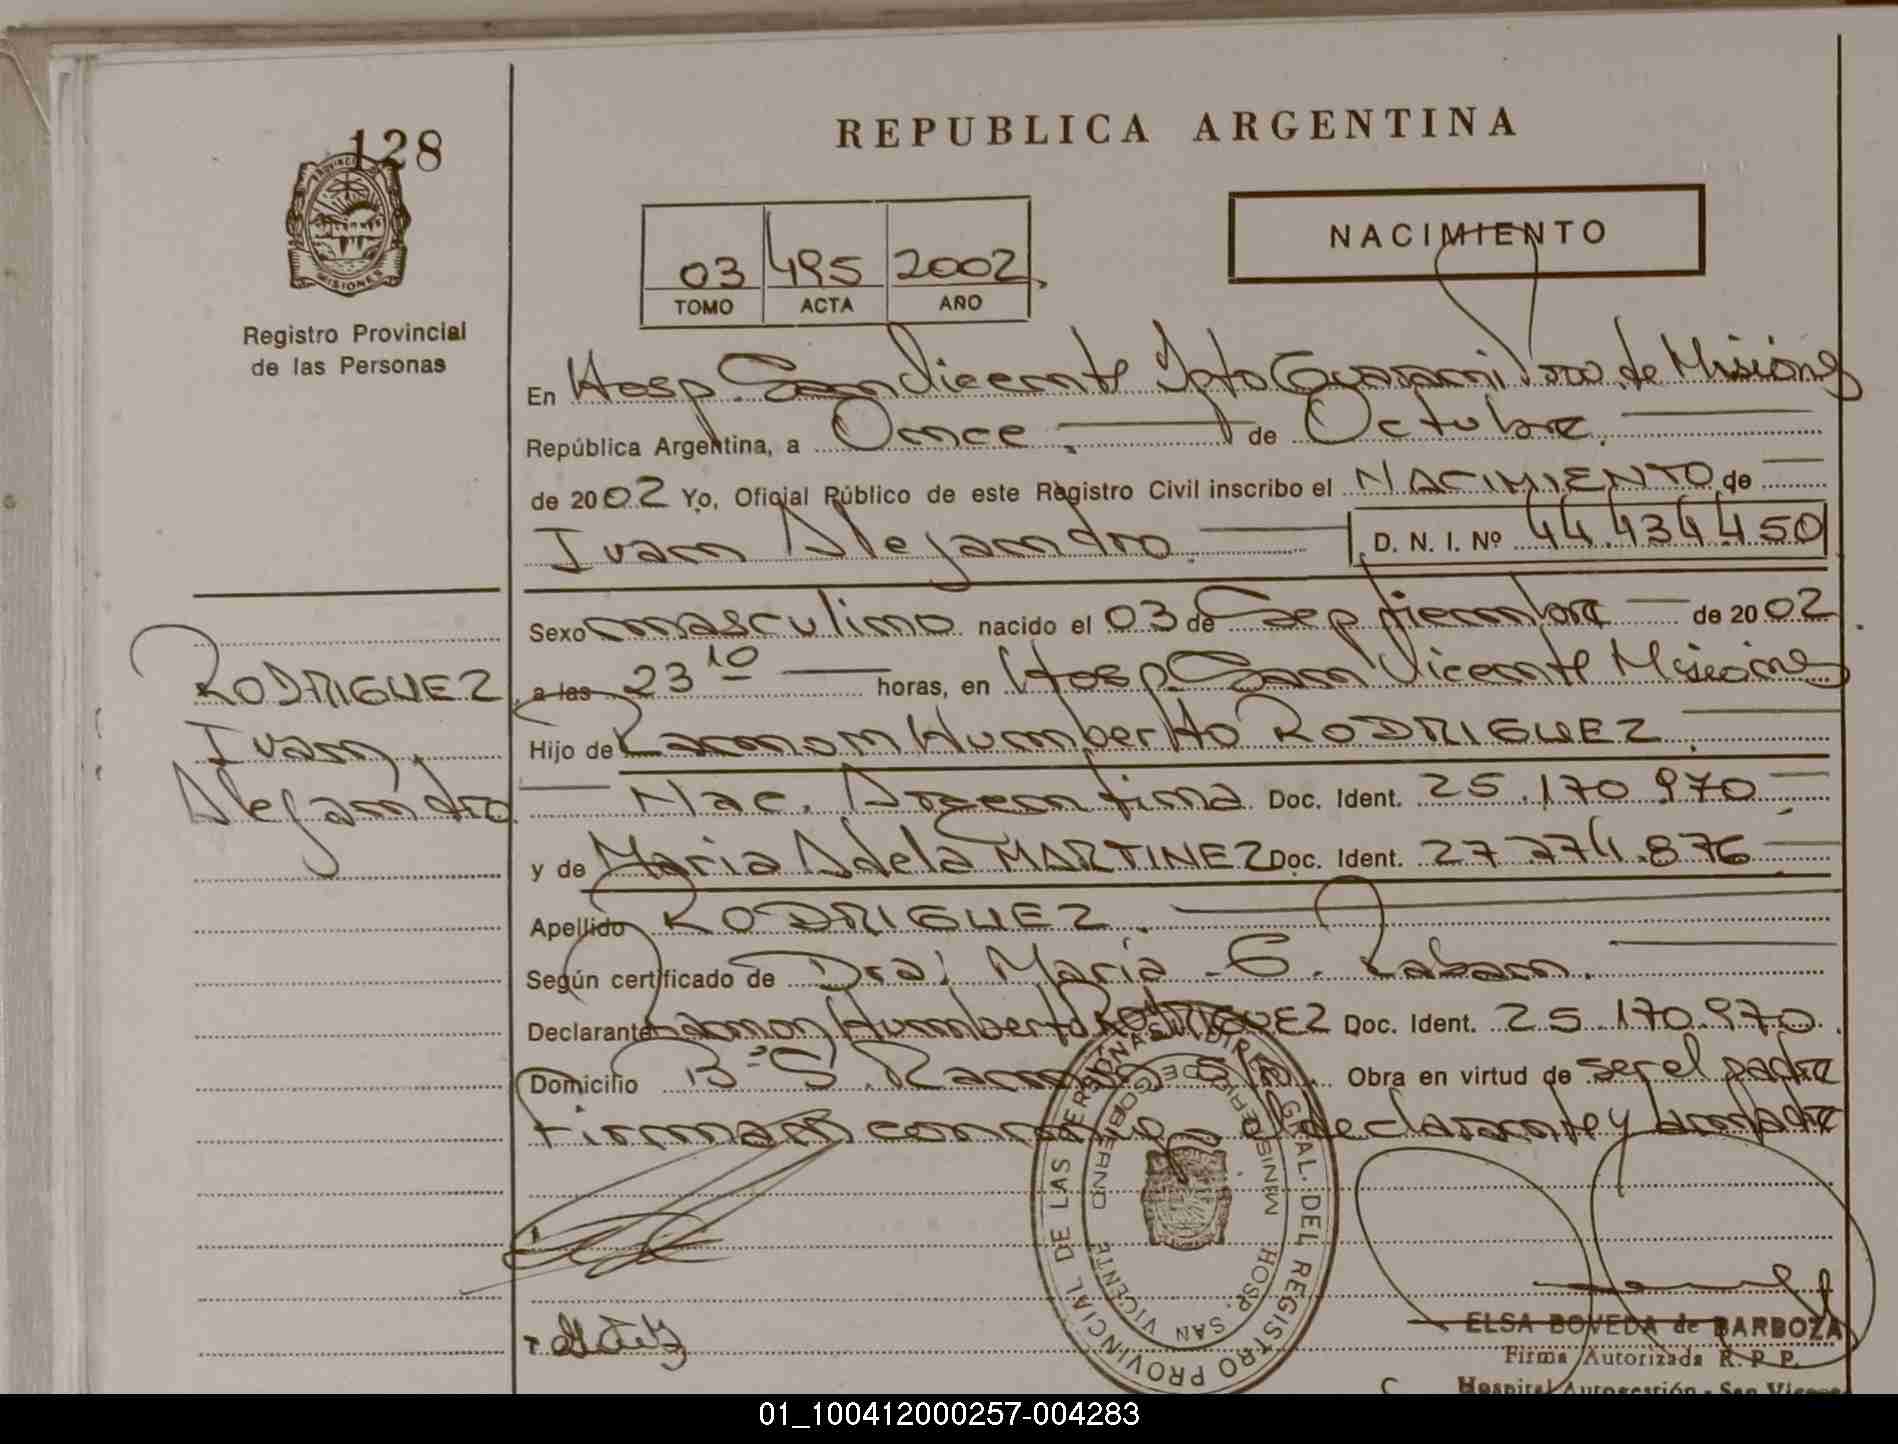 128
REPUBLICA ARGENTINA
PROVINCIA
MISIONES
Registro Provincial
de las Personas
03 495 2002
TOMO ACTA AÑO
NACIMIENTO
En Hosp. San Vicente Dpto Guarani Prov. de Misiones
República Argentina, a Once de Octubre.
de 2002 Yo, Oficial Público de este Registro Civil inscribo el NACIMIENTO de
Ivan Alejandro. D. N. I. Nº 44.434.450
Sexo masculino nacido el 03 de Septiembre de 2002
RODRIGUEZ
Ivan
Alejandro.
a las 23 10 horas, en Hosp. San Vicente Misiones
Hijo de Ramon Humberto RODRIGUEZ.
Nac. Argentina Doc. Ident. 25.170.970
y de Maria Adela MARTINEZ Doc. Ident. 27.274.876
Apellido RODRIGUEZ.
Según certificado de Dra: Maria E. Raban.
Declarante Ramon Humberto RODRIGUEZ Doc. Ident. 25.170.970.
Domicilio Bº S. Ramon S/N. Obra en virtud de ser el padre
Firman conmigo el declarante y la madre
DIREC. GRAL. DEL REGISTRO PROVINCIAL DE LAS PERSONAS
MINISTERIO DE GOBIERNO
HOSP. SAN VICENTE
ELSA BOVEDA de BARBOZA
Firma Autorizada R. P. P.
Hospital Autogestión - San Vicente
01_100412000257-004283